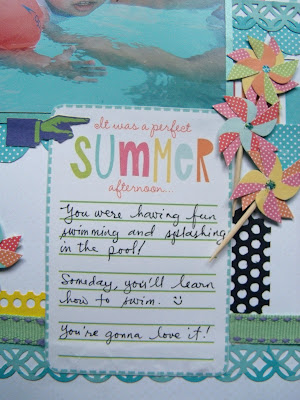 It was a perfect
SUMMER
afternoon...
You were having fun
swimming and splashing
in the pool!
Someday, you'll learn
how to swim. :)
You're gonna love it!